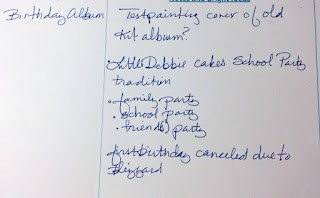 Birthday Album
Test painting cover of old
Kit album?
• Little Debbie cakes School Party
tradition
• family party
• school party
• friends' party
first birthday canceled due to
Blizzard